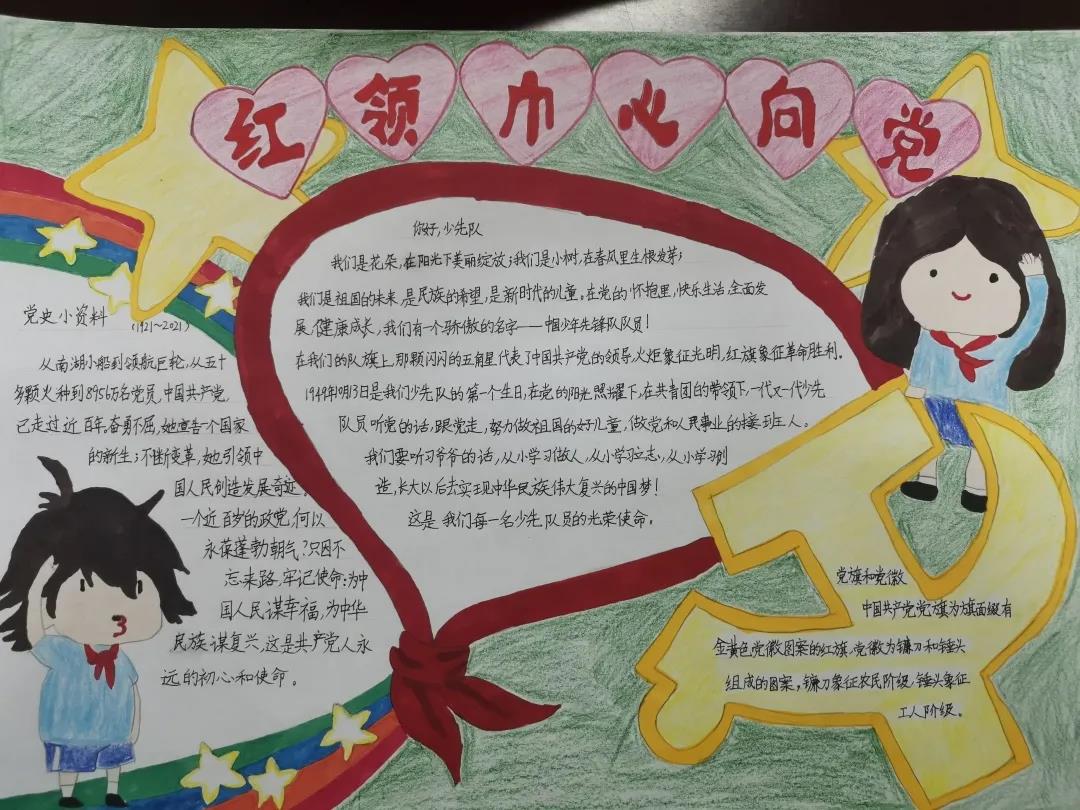 红领巾心向党
你好,少先队
我们是花朵,在阳光下美丽绽放;我们是小树,在春风里生根发芽;
我们是祖国的未来,是民族的希望,是新时代的儿童。在党的怀抱里,快乐生活,全面发
展,健康成长,我们有一个骄傲的名字——中国少年先锋队队员!
在我们的队旗上,那颗闪闪的五角星代表了中国共产党的领导,火炬象征光明,红旗象征革命胜利。
1949年10月13日是我们少先队的第一个生日,在党的阳光照耀下,在共青团的带领下,一代又一代少先
队员听党的话,跟党走,努力做祖国的好儿童,做党和人民事业的接班人。
我们要听习爷爷的话,从小学习做人,从小学习立志,从小学习创
造,长大以后去实现中华民族伟大复兴的中国梦!
这是我们每一名少先队员的光荣使命。
党史小资料 (1921~2021)
从南湖小船到领航巨轮,从五十
多颗火种到8956万名党员,中国共产党,
已走过近百年。奋勇不屈,她宣告一个国家
的新生;不断变革,她引领中
国人民创造发展奇迹。
一个近百岁的政党,何以
永葆蓬勃朝气?只因不
忘来路,牢记使命:为中
国人民谋幸福,为中华
民族谋复兴,这是共产党人永
远的初心和使命。
党旗和党徽
中国共产党党旗为旗面缀有
金黄色党徽图案的红旗,党徽为镰刀和锤头
组成的图案,镰刀象征农民阶级,锤头象征
工人阶级。